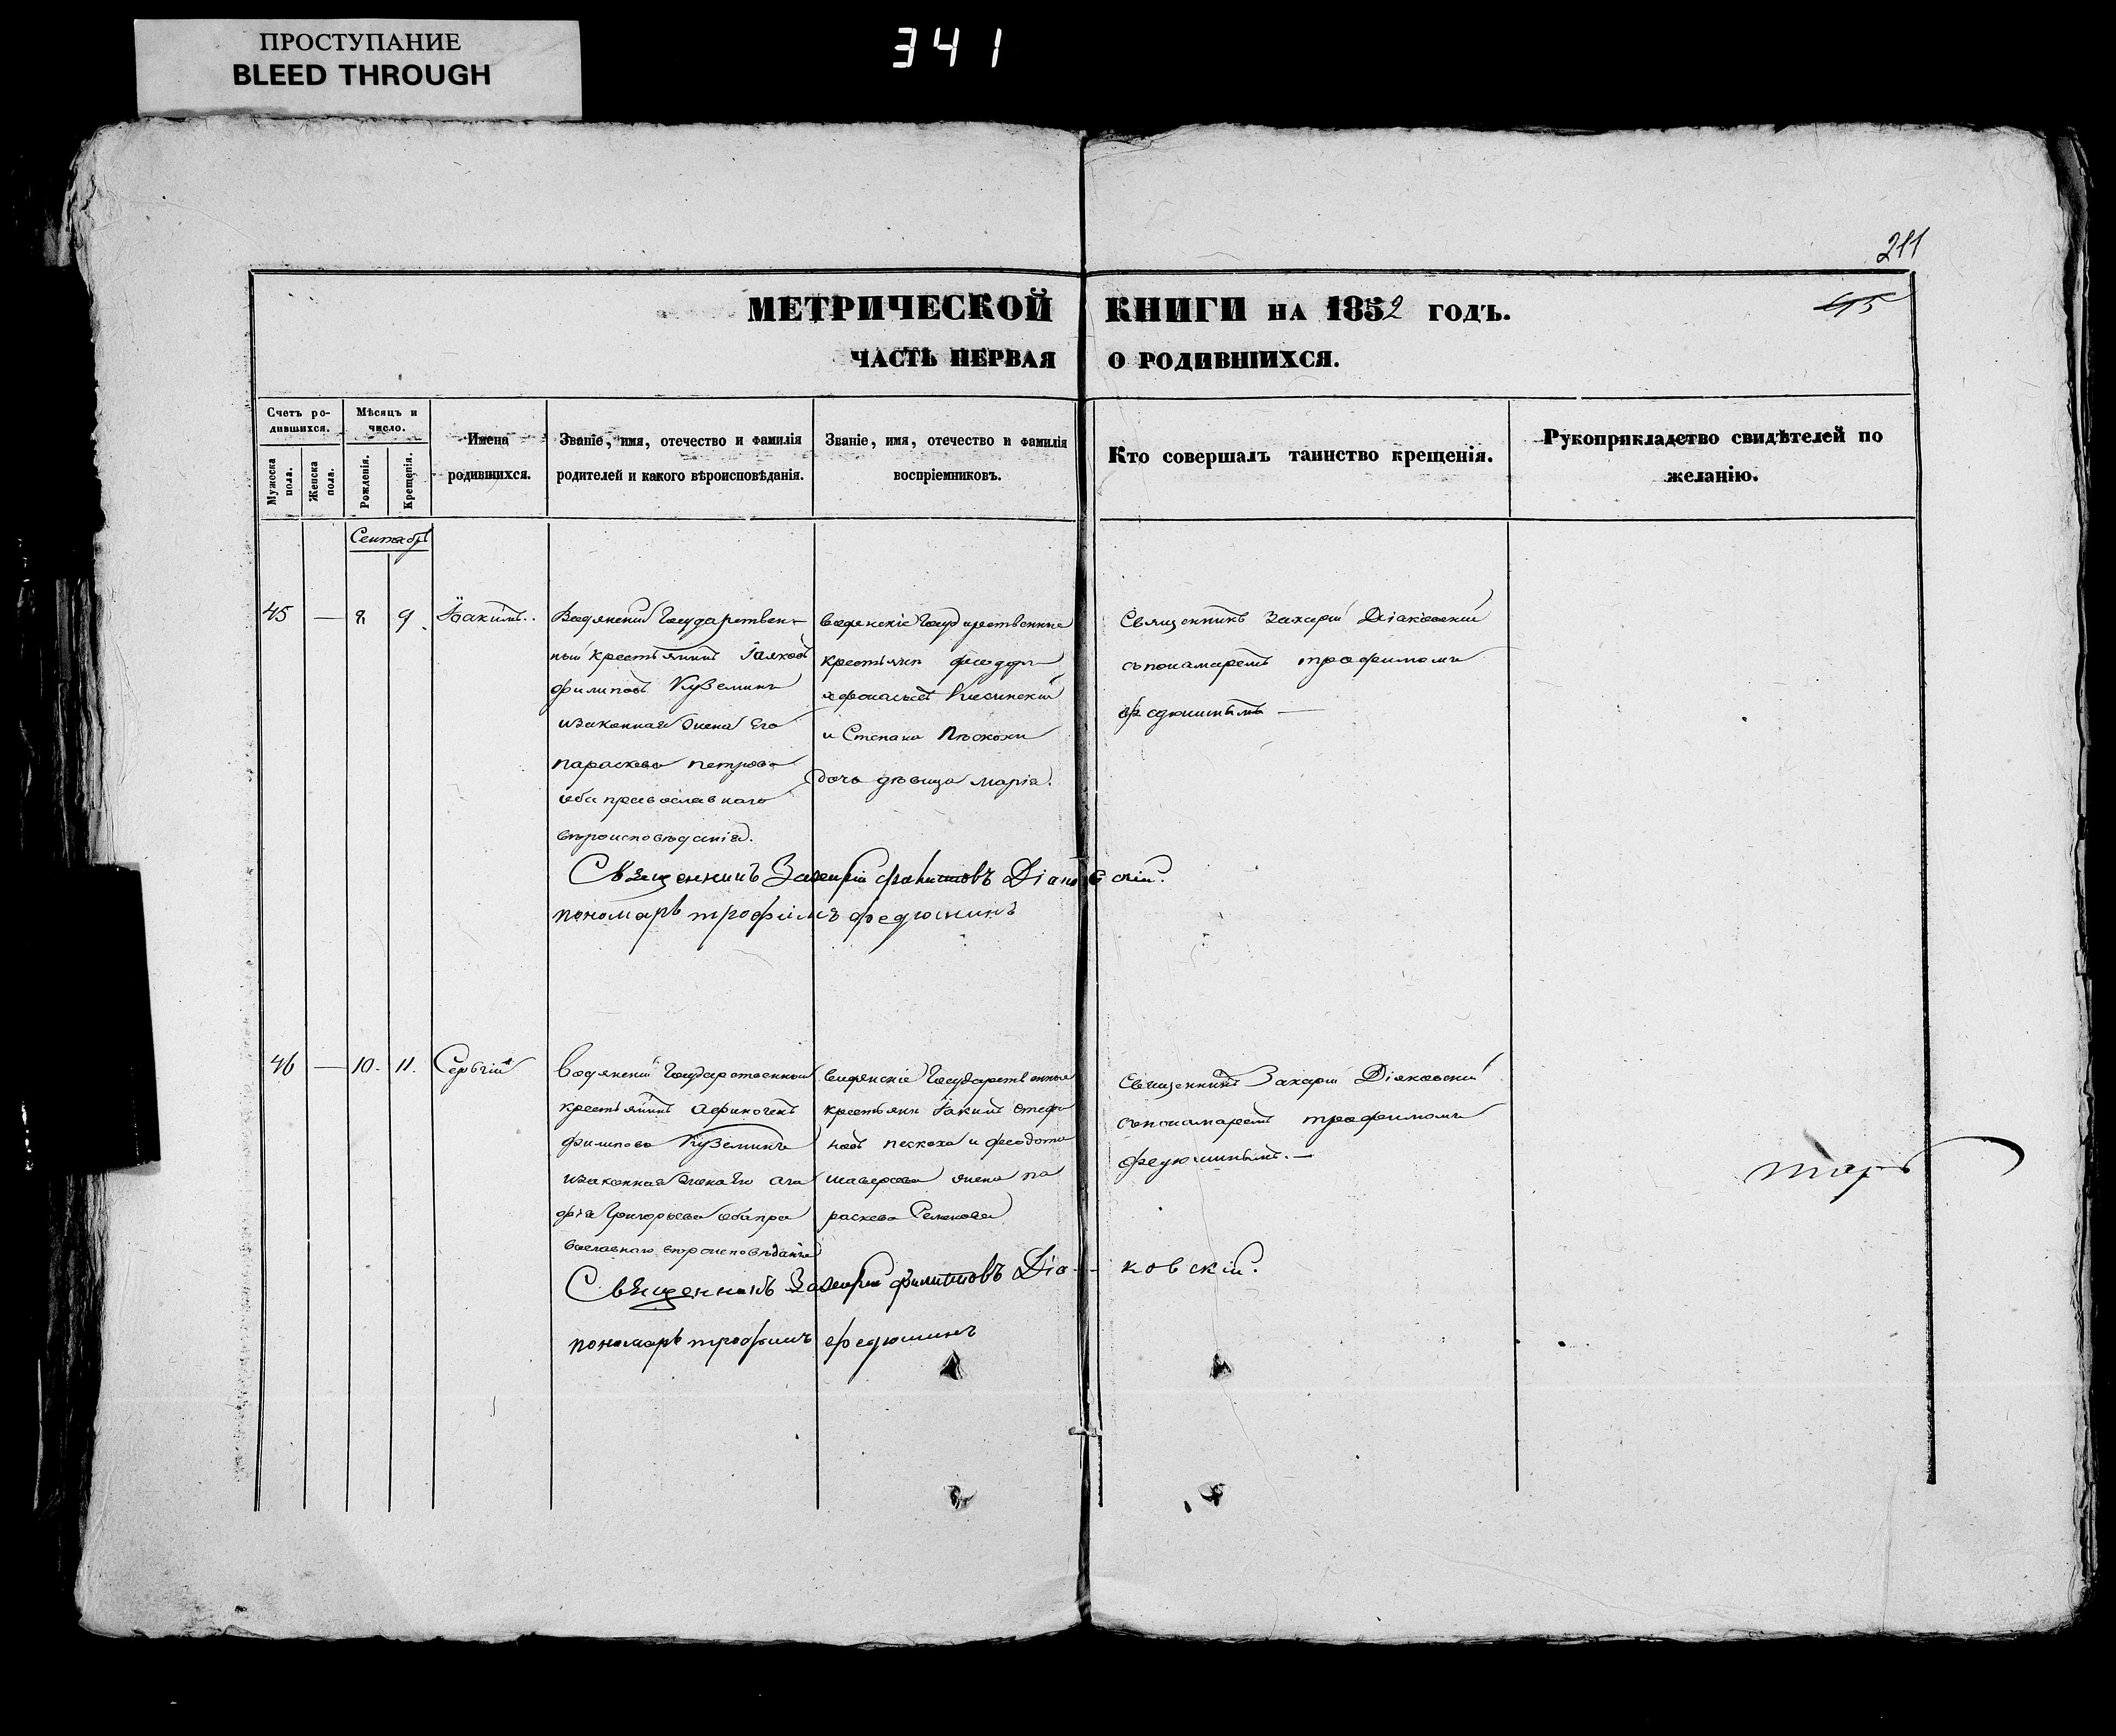 ПРОСТУПАНИЕ
BLEED THROUGH
341
211
МЕТРИЧЕСКОЙ КНИГИ НА 1852 ГОДЪ.
45
ЧАСТЬ ПЕРВАЯ О РОДИВШИХСЯ.
Счетъ ро-
дившихся.
Мужеска пола.
Женска пола.
Мѣсяцъ и
число.
Рожденія.
Крещенія.
Имена
родившихся.
Званіе, имя, отечество и фамилія
родителей и какого вѣроисповѣданія.
Званіе, имя, отечество и фамилія
воспріемниковъ.
Кто совершалъ таинство крещенія.
Рукоприкладство свидѣтелей по
желанію.
Сентябрь
45 — 8 9 Іакимъ
Водянскій Государствен-
ный крестьянинъ Іаковъ
филиповъ Куземинъ
изаконная жена Его
параскева петрова
оба православнаго
вѣроисповѣданія.
водянскіе Государственные
крестьяни феодоръ
Кисинскій
и Степана Пѣскохи
дочь дѣвица марія.
Священникъ Захарій Діаковскій
съпонамаремъ трофимомъ
федюшинымъ —
Священникъ Захарій филиповъ Діаковскій.
пономарь трофимъ федюшинъ
46 — 10. 11. Сергій
Водянскій Государственный
крестьянинъ Афиногенъ
филиповъ Куземинъ
изаконная жена Его ага
фія Григорьева оба пра
вославнаго вѣроисповѣданія
водянскіе Государственные
крестьяни Іакимъ Стефа
новъ пескоха и феодота
шаверева жена па
раскева Семенова
Священникъ Захарій Діяковскій
съпонамаремъ трофимомъ
федюшинымъ. —
тарь
Священникъ Захарій филиповъ Діа- ковскій.
пономарь трофимъ федюшинъ